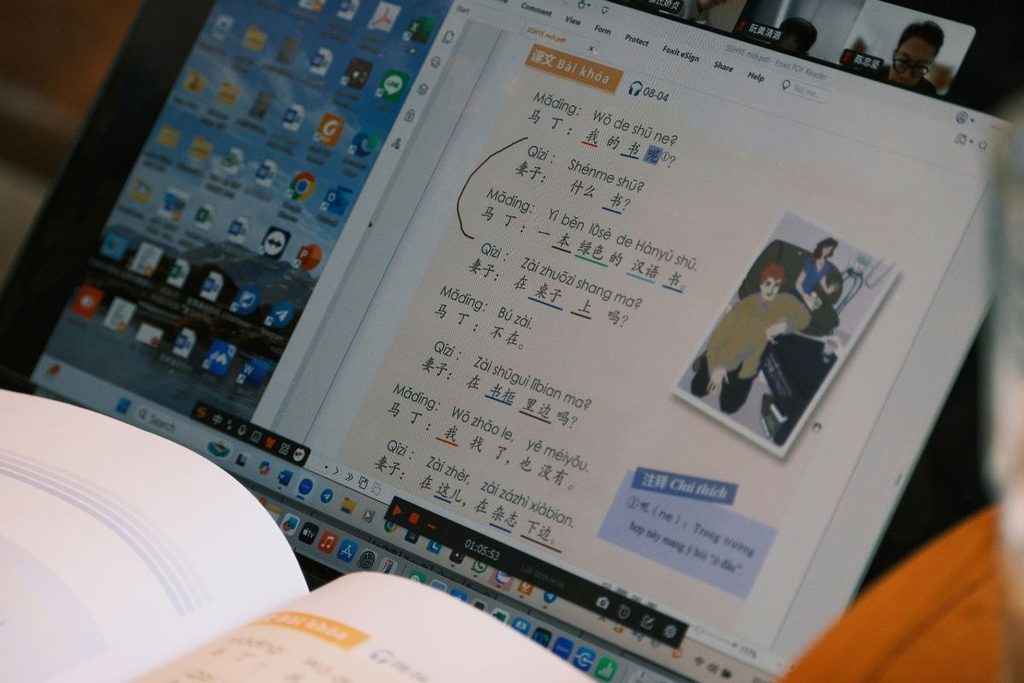 Comment View Form Protect Foxit eSign Share Help Tell me...
SSHYE mới.pdf - Foxit PDF Reader
阮黄清源
陈忠坚
课文 Bài khóa
08-04
Mǎdīng: Wǒ de shū ne?
马 丁：我 的 书 呢①?
Qīzi: Shénme shū?
妻子： 什么 书?
Mǎdīng: Yì běn lǜsè de Hànyǔ shū.
马 丁：一 本 绿色 的 汉语 书。
Qīzi: Zài zhuōzi shang ma?
妻子：在 桌子 上 吗?
Mǎdīng: Bú zài.
马 丁：不 在。
Qīzi: Zài shūguì lǐbian ma?
妻子：在 书柜 里边 吗?
Mǎdīng: Wǒ zhǎo le, yě méiyǒu.
马 丁：我 找 了，也 没有。
Qīzi: Zài zhèr, zài zázhì xiàbian.
妻子：在 这儿，在 杂志 下边。
注释 Chú thích
①呢 (ne): Trong trường
hợp này mang ý hỏi "ở đâu"
01:05:53
Search
Bài khóa